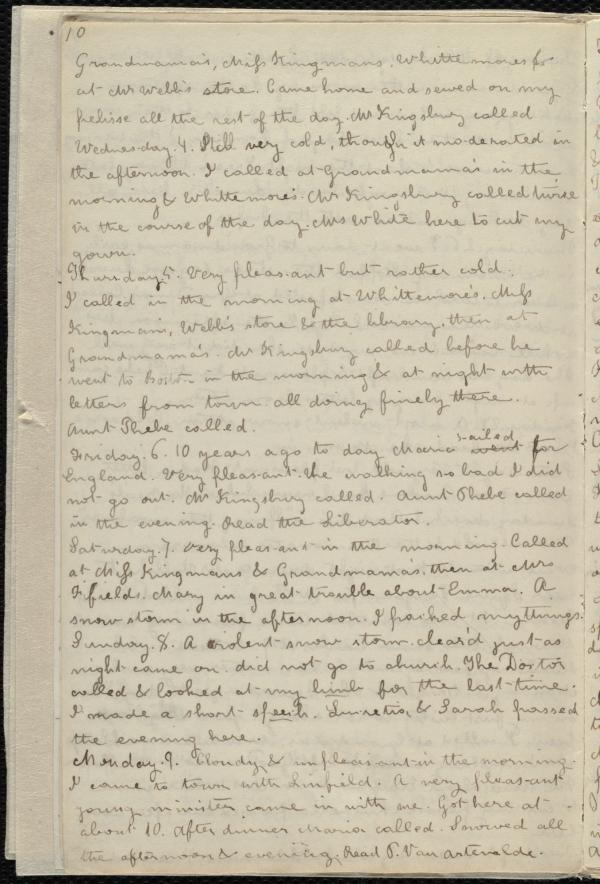 10
Grandmama's, Miss Kingmans, Whittemores &
at Mr Webb's store. Came home and sewed on my
pelisse all the rest of the day. Mr Kingsbury called
Wednesday. 4. Still very cold, though it moderated in
the afternoon. I called at Grandmama's in the
morning & Whittemore's. Mr Kingsbury called twice
in the course of the day. Mrs White here to cut my
gown.
Thursday. 5. Very pleasant but rather cold.
I called in the morning at Whittemore's, Miss
Kingman's, Webb's store & the library, then at
Grandmama's. Mr Kingsbury called before he
went to Boston in the morning & at night with
letters from town. all doing finely there.
Aunt Phebe called.
Friday. 6. 10 years ago to day Maria sailed went for
England. Very pleasant. the walking so bad I did
not go out. Mr Kingsbury called. Aunt Phebe called
in the evening. Read the Liberator.
Saturday. 7. Very pleasant in the morning. Called
at Miss Kingmans & Grandmama's, then at Mrs
Fifields. Mary in great trouble about Emma. A
snow storm in the afternoon. I packed my things.
Sunday. 8. A violent snow storm. clear'd just as
night came on. did not go to church. The Doctor
called & looked at my limb for the last time.
I made a short speech. Lucretia & Sarah passed
the evening here.
Monday. 9. Cloudy & unpleasant in the morning.
I came to town with Linfield. A very pleasant
young minister came in with me. Got here at
about 10. After dinner Maria called. Snowed all
the afternoon & evening. Read P. Van artevelde.